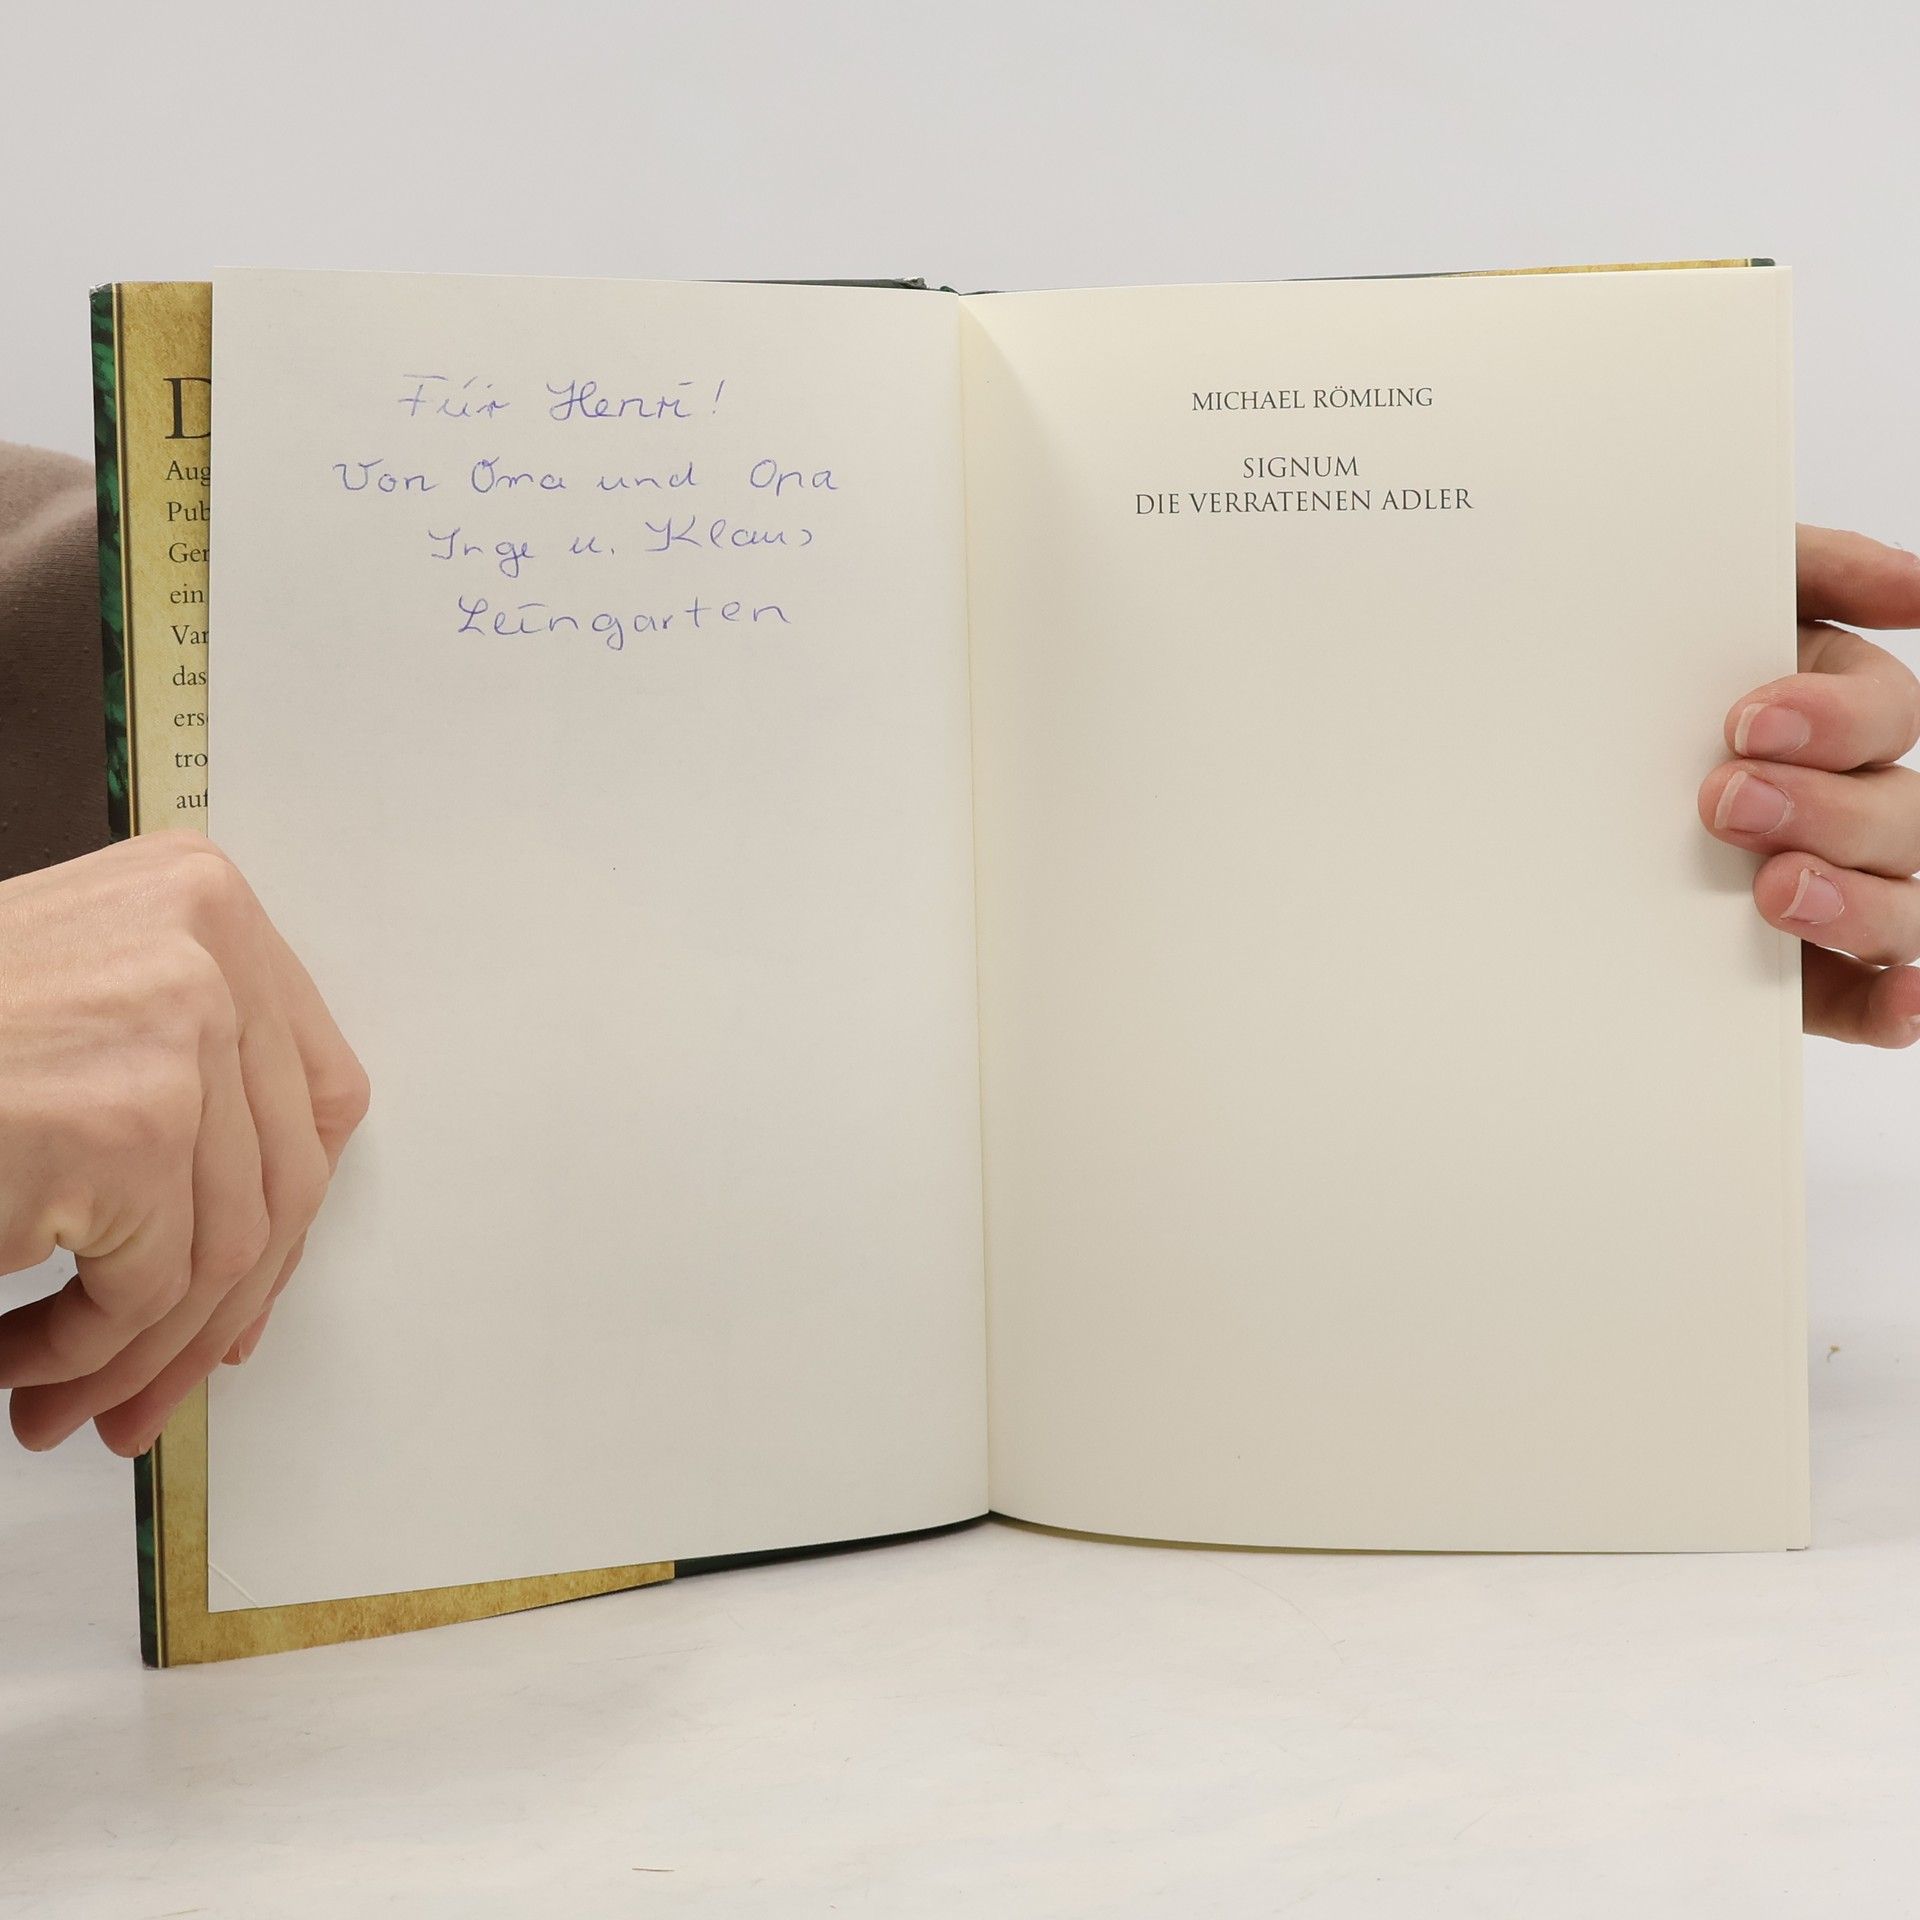 D
Aug
Pub
Ger
ein
Var
das
ers
tro
auf
Für Henri!
Von Oma und Opa
Inge u. Klaus
Leingarten
MICHAEL RÖMLING
SIGNUM
DIE VERRATENEN ADLER